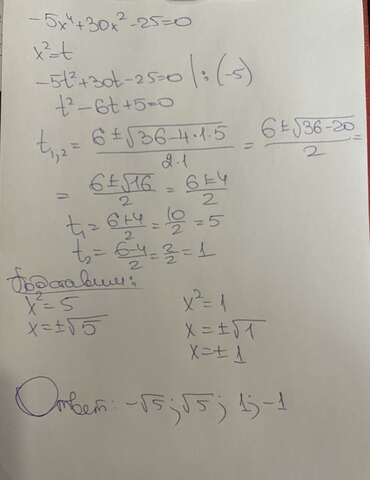 -5x⁴+30x²-25=0
x²=t
-5t²+30t-25=0 |:(-5)
t²-6t+5=0
t₁,₂ = (6±√(36-4·1·5))/(2·1) = (6±√(36-20))/2 =
= (6±√16)/2 = (6±4)/2
t₁ = (6+4)/2 = 10/2 = 5
t₂ = (6-4)/2 = 2/2 = 1
Подставим:
x²=5 x²=1
x=±√5 x=±√1
x=±1
Ответ: -√5; √5; 1; -1